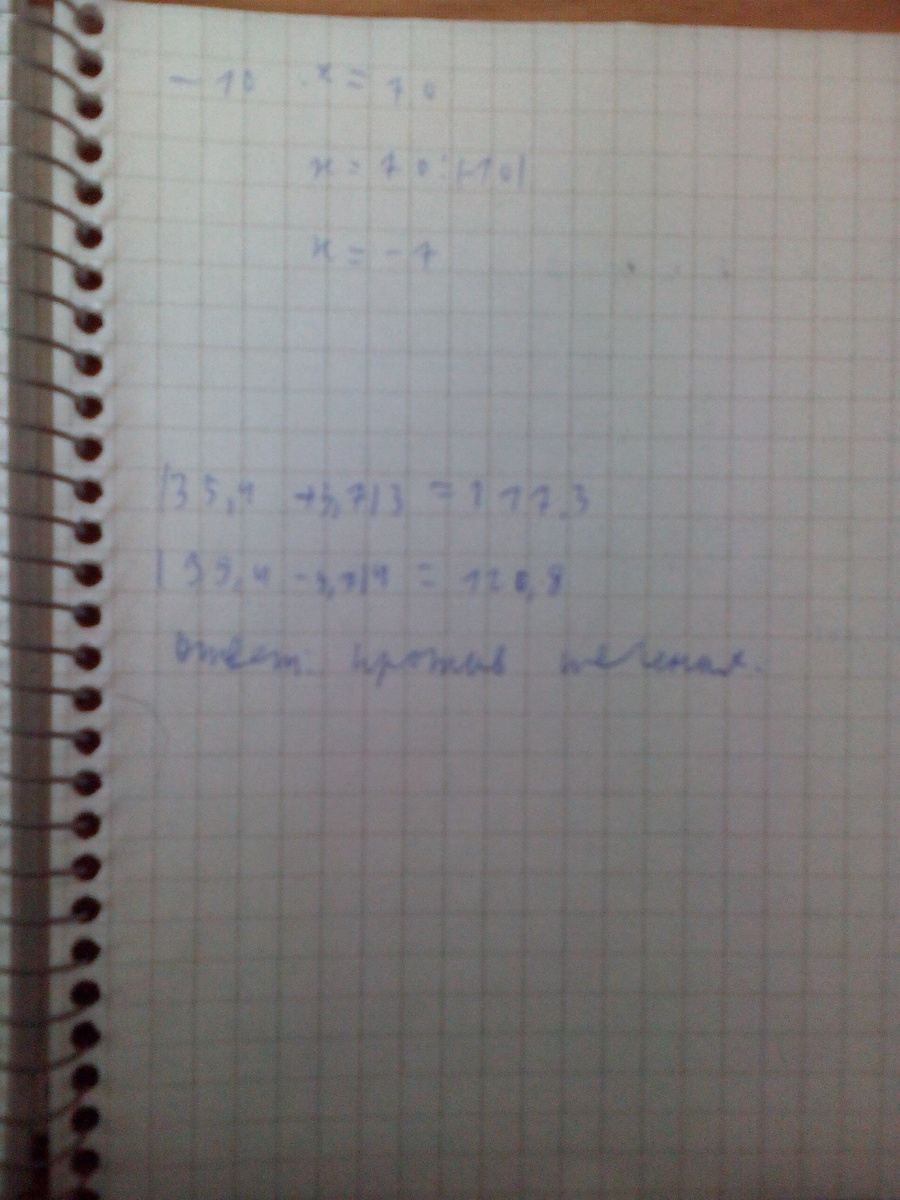 - 10 x = 70
x = 70 : (-10)
x = - 7
(35,4 + 3,7) 3 = 117,3
(35,4 - 3,7) 4 = 126,8
ответ: против течения.